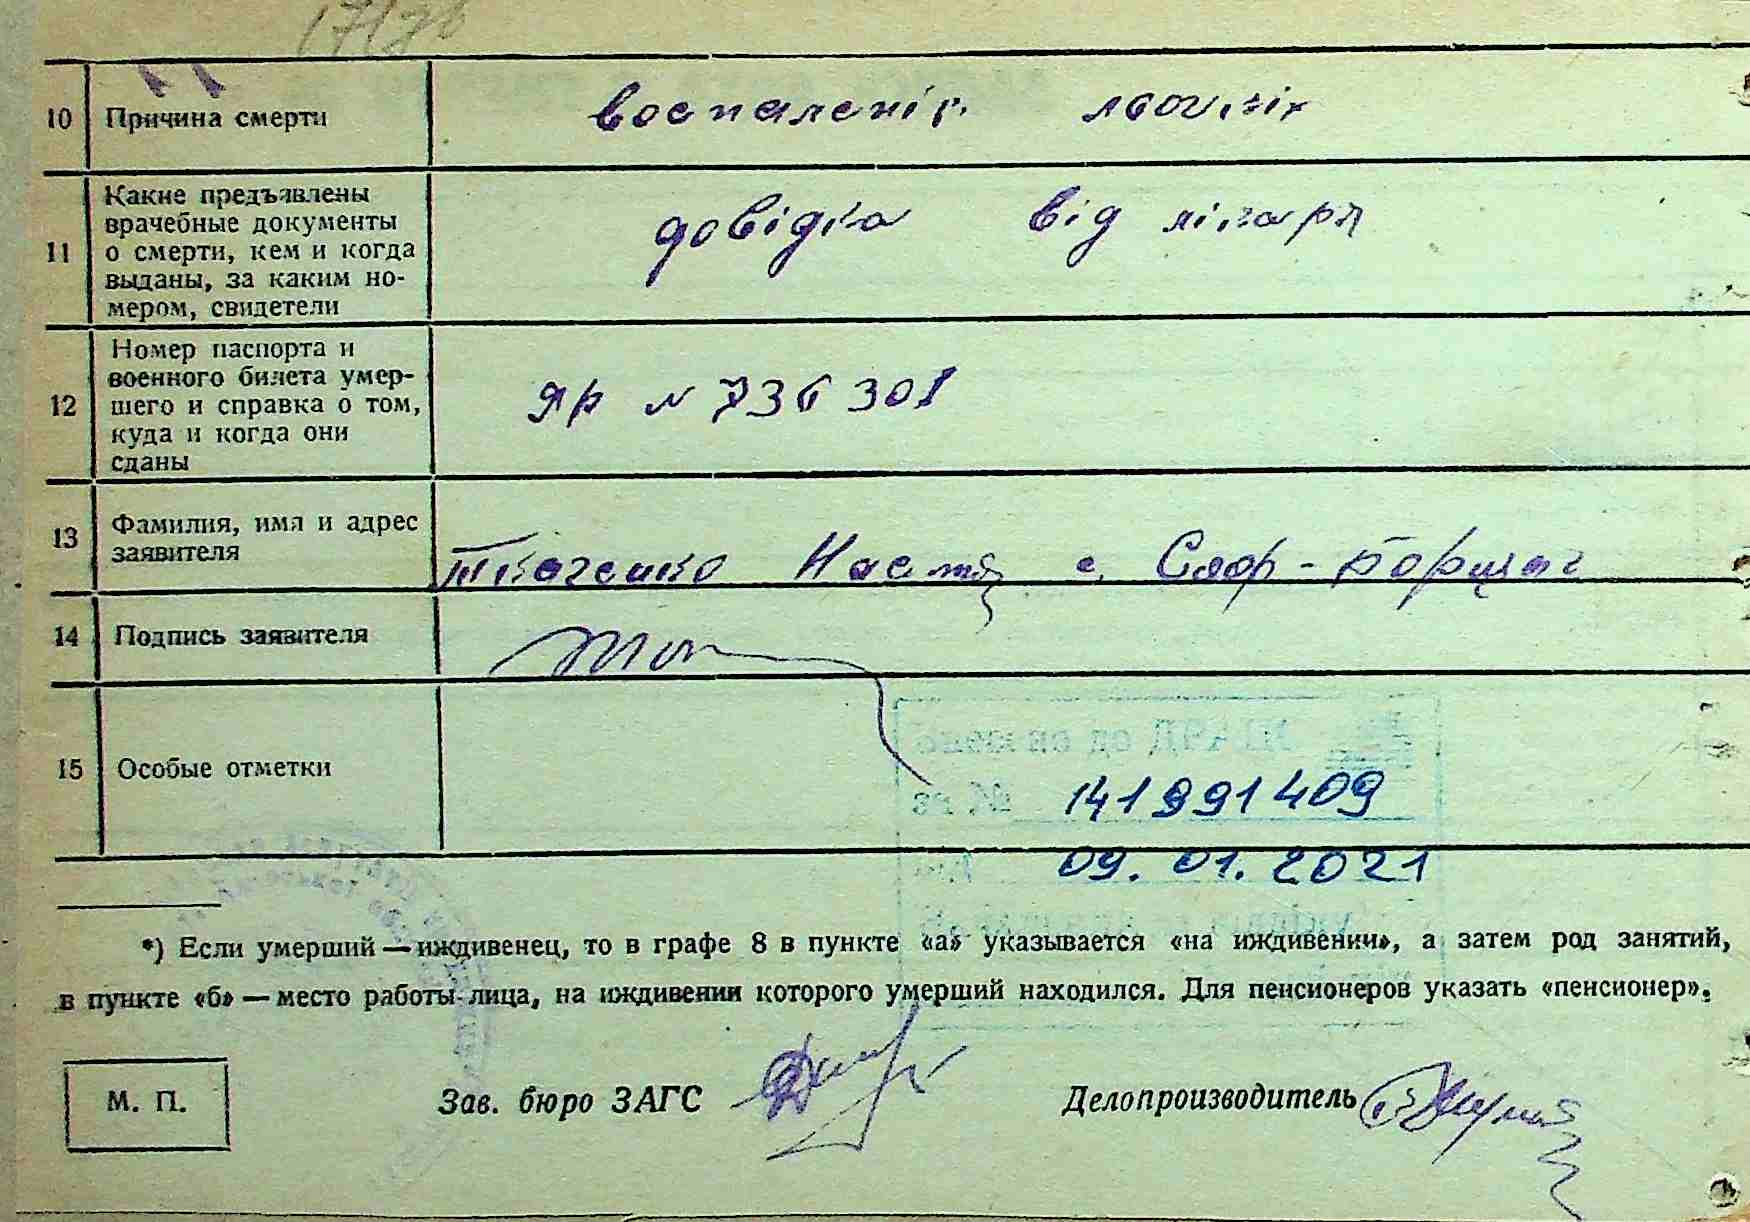 10 Причина смерти воспаленія легкіх
11 Какие предъявлены
врачебные документы
о смерти, кем и когда
выданы, за каким но-
мером, свидетели
довідка від лікаря
12 Номер паспорта и
военного билета умер-
шего и справка о том,
куда и когда они
сданы
ЯР № 736301
13 Фамилия, имя и адрес
заявителя
Ткаченко Настя с. Соф-Борщаг
14 Подпись заявителя
15 Особые отметки
141991409
09.01.2021
*) Если умерший — иждивенец, то в графе 8 в пункте «а» указывается «на иждивении», а затем род занятий,
в пункте «б» — место работы лица, на иждивении которого умерший находился. Для пенсионеров указать «пенсионер».
М. П. Зав. бюро ЗАГС Делопроизводитель